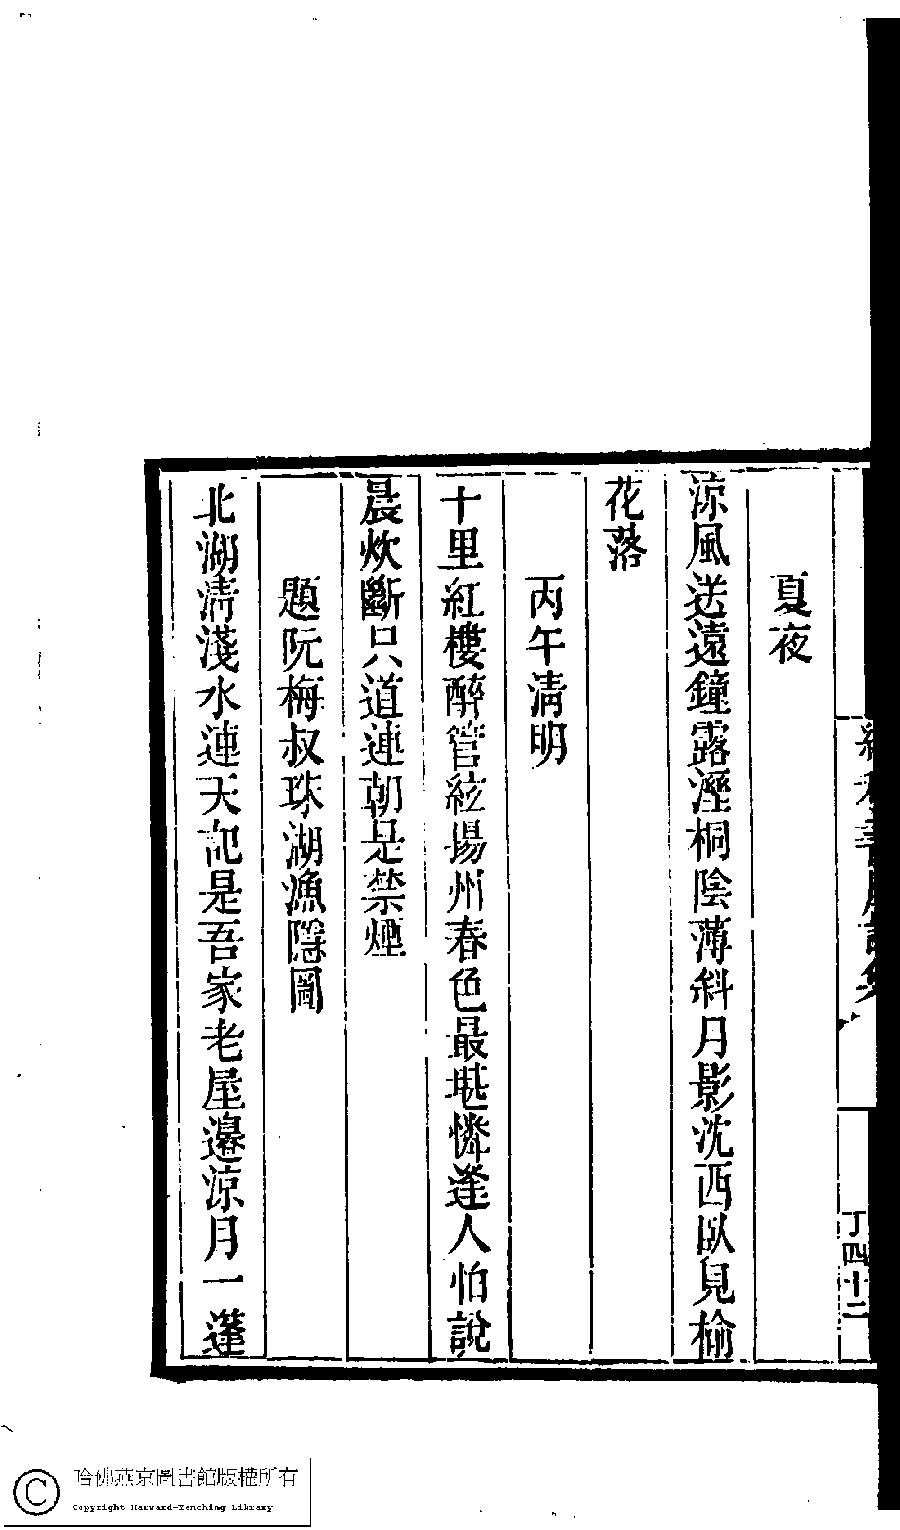 夏夜
涼風送遠鐘露溼桐陰薄斜月影沈西臥見榆
花落
丙午清明
十里紅樓醉管絃揚州春色最堪憐逢人怕說
晨炊斷只道連朝是禁煙
題阮梅叔珠湖漁隱圖
北湖清淺水連天記是吾家老屋邊涼月一蓬
丁四十二
哈佛燕京圖書館版權所有
Copyright Harvard-Yenching Library